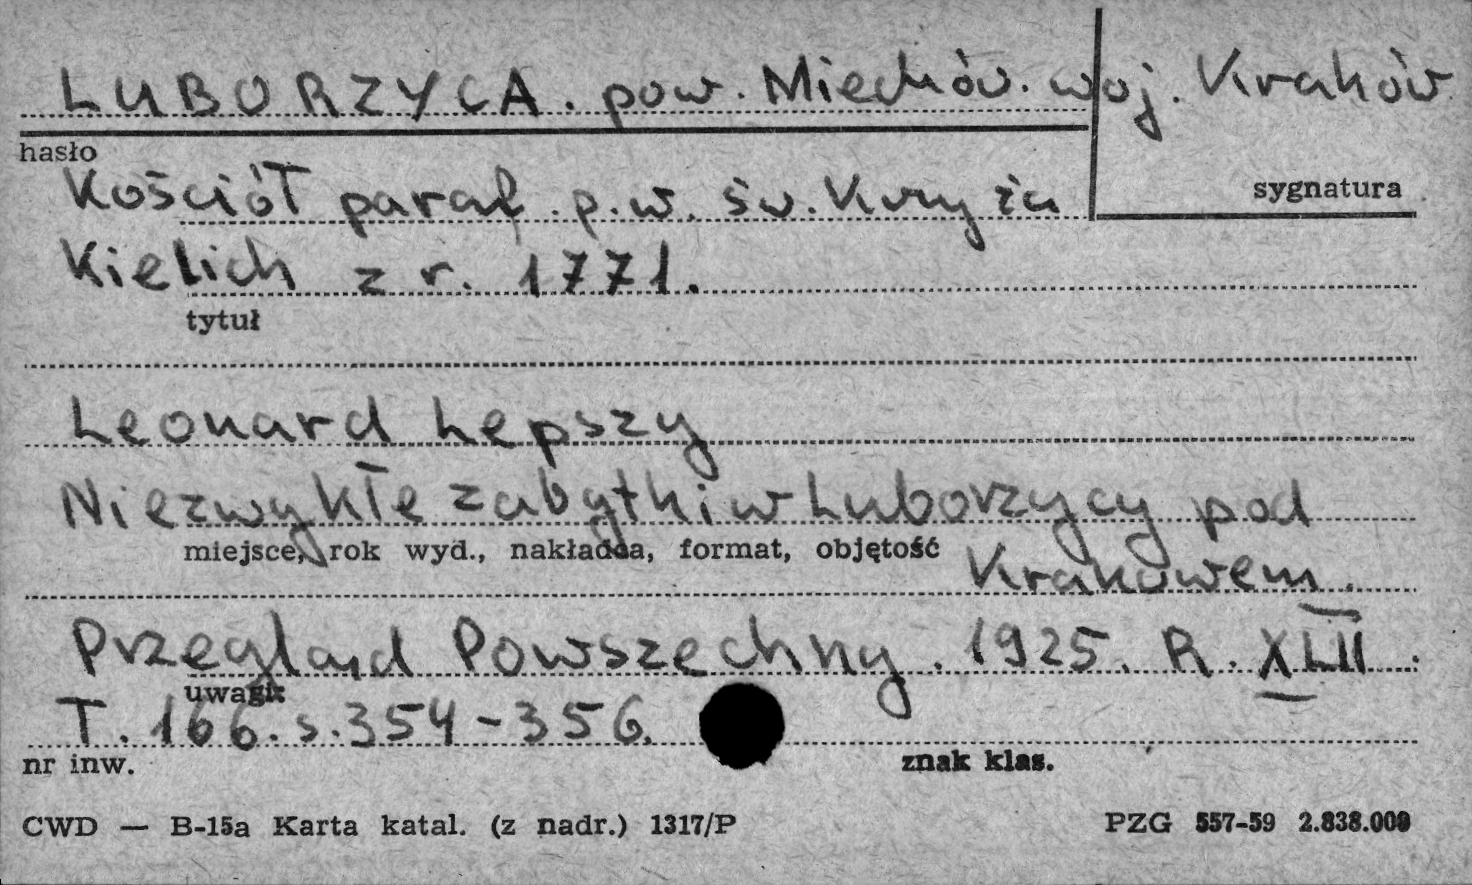 LUBORZYCA. pow. Miechów. woj. Kraków
hasło
Kościół paraf. p.w. św. Krzyża
sygnatura
Kielich z r. 1771.
tytuł
Leonard Lepszy
Niezwykłe zabytki w Luborzycy pod
miejsce, rok wyd., nakładca, format, objętość
Krakowem.
Przegląd Powszechny. 1925. R. XLII.
uwagi:
T. 166. s. 354-356.
nr inw. znak klas.
CWD — B-15a Karta katal. (z nadr.) 1317/P PZG 557-59 2.838.000